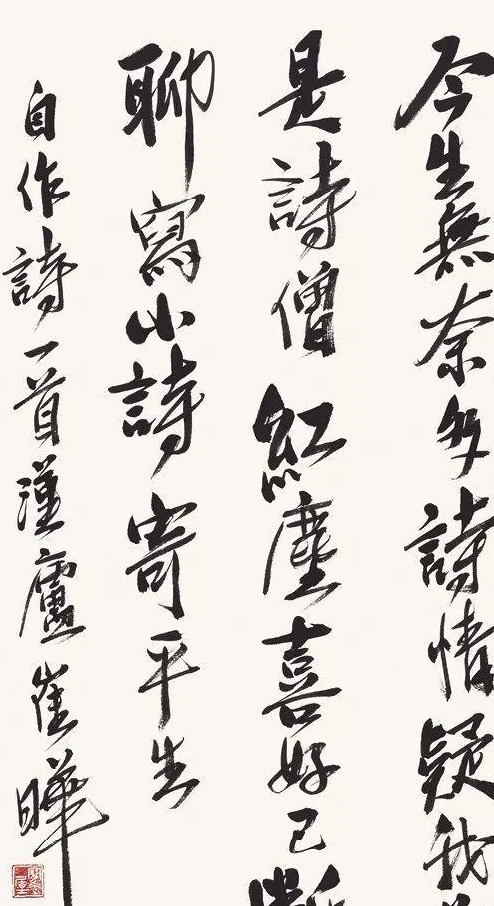 今生無奈多詩情疑我
是詩僧紅塵喜好已斷
聊寫小詩寄平生
自作詩一首漢廬崔曄